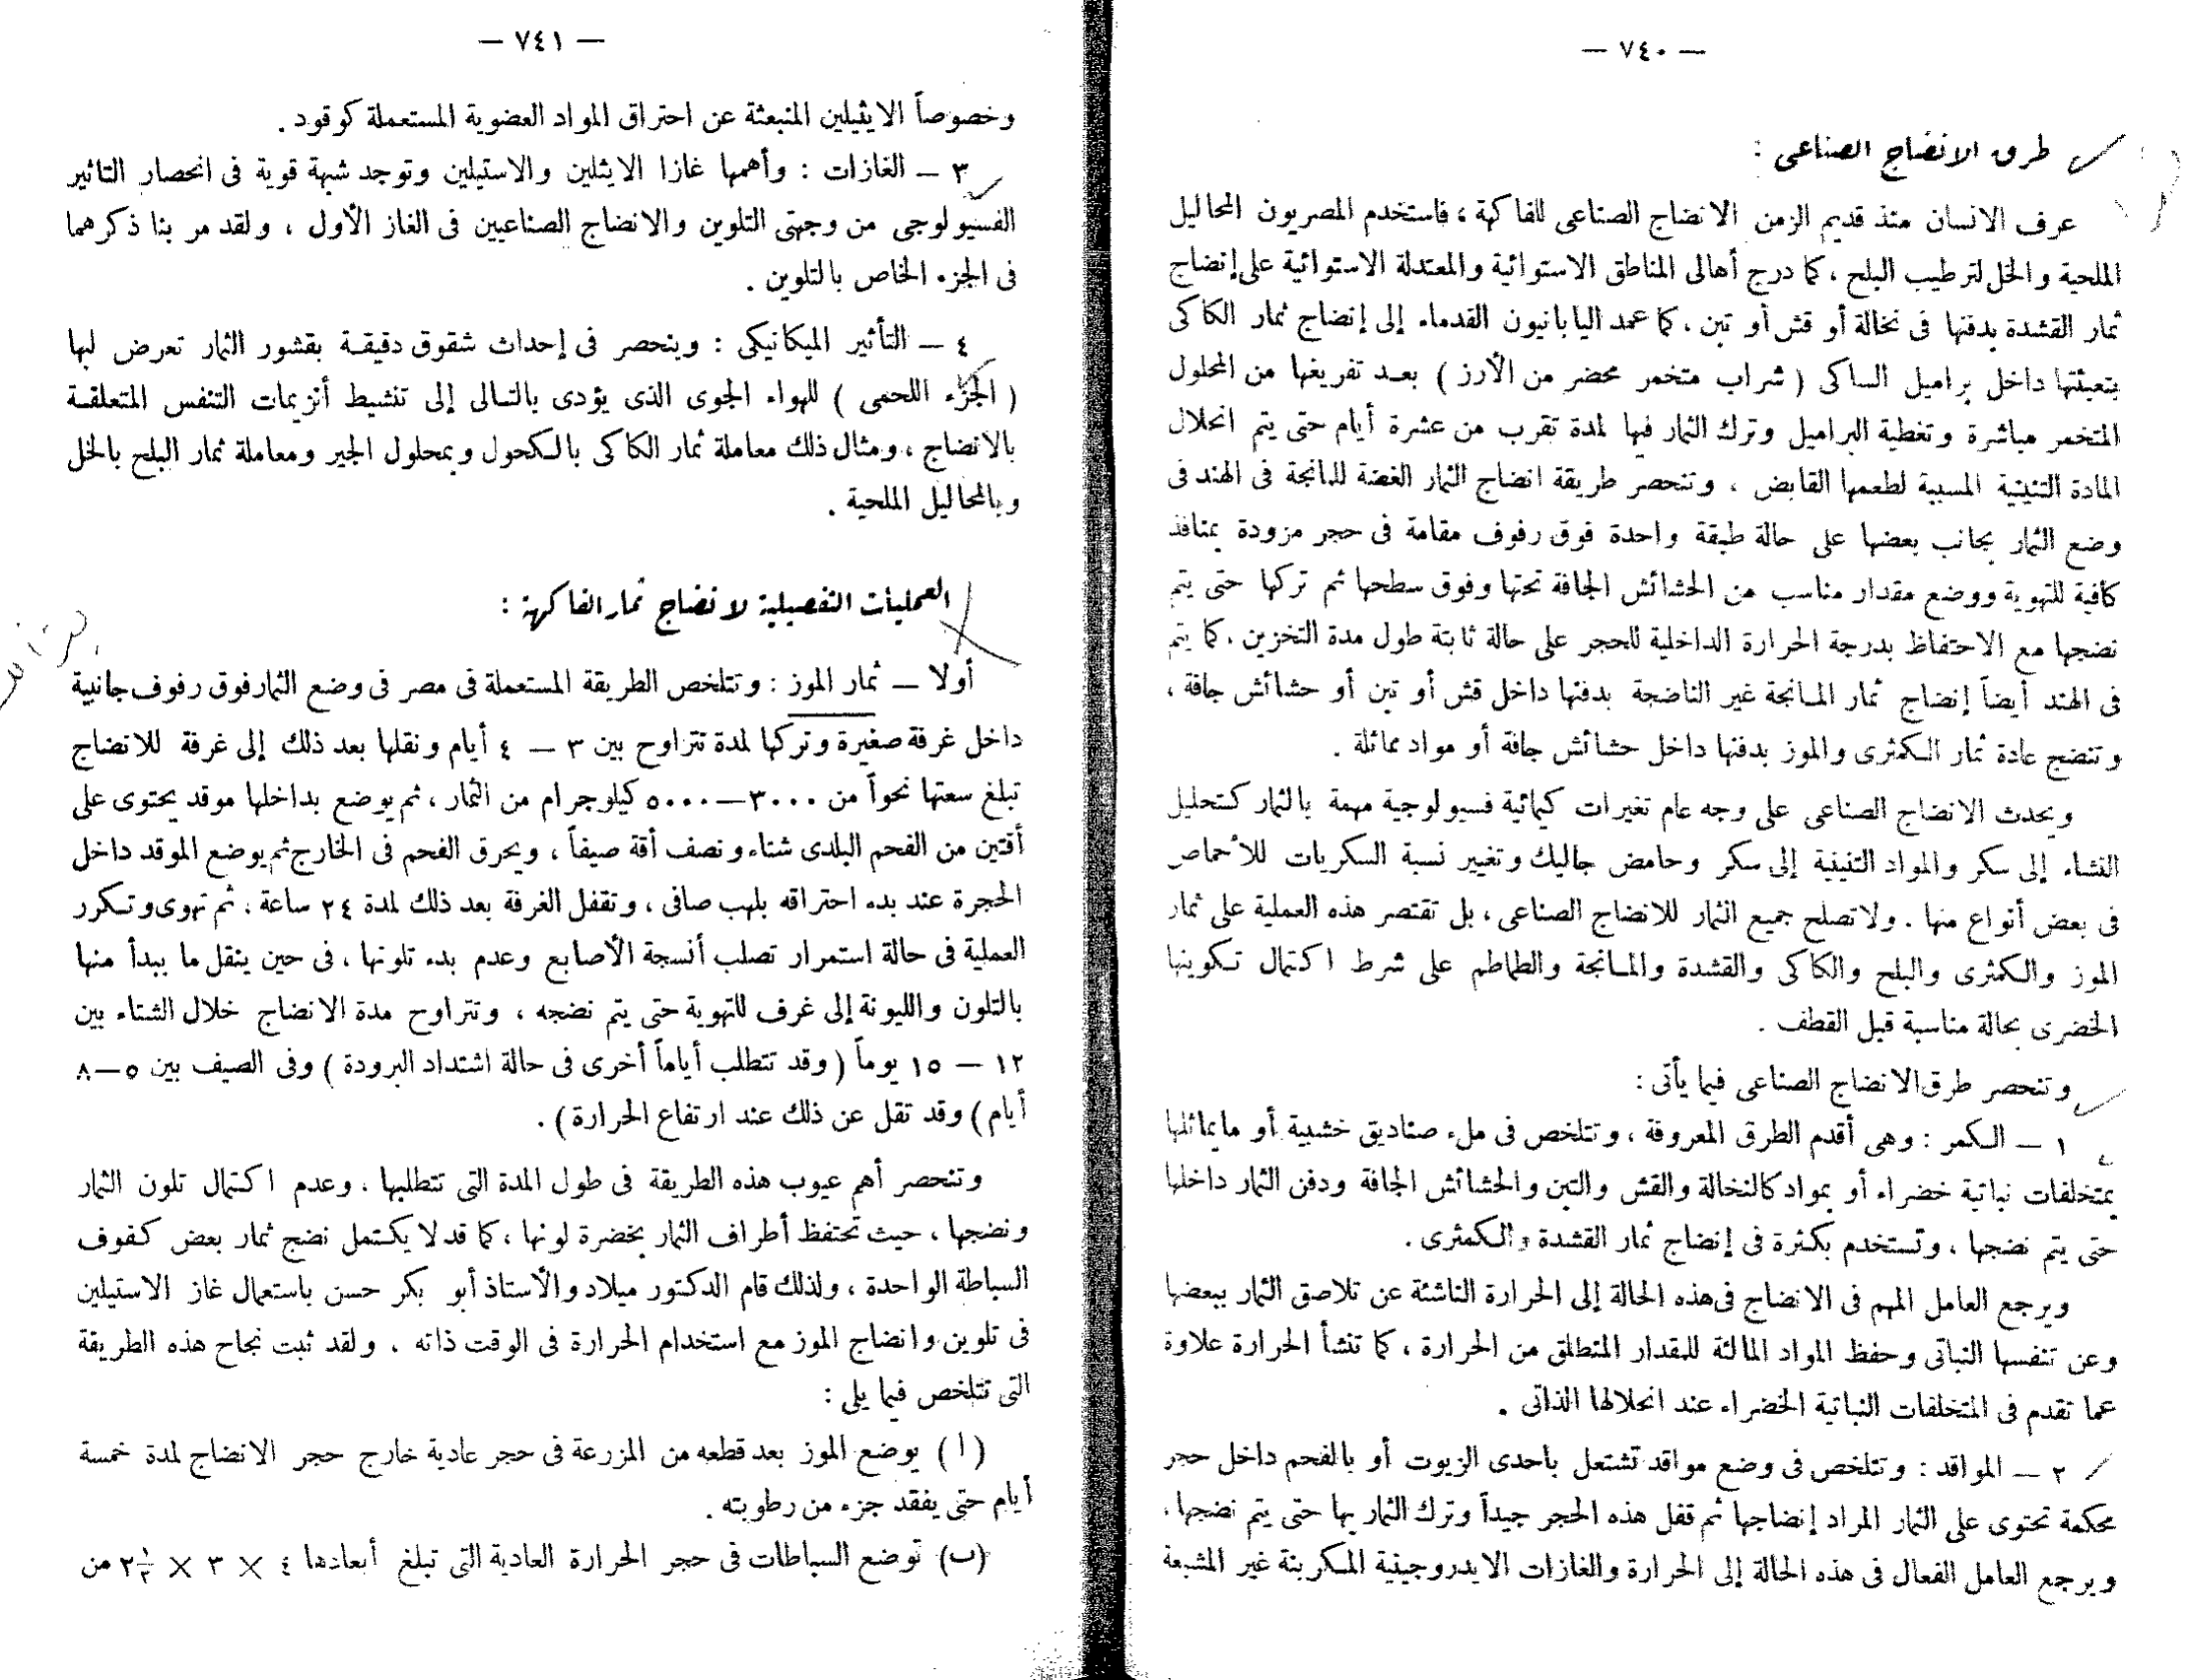 — ٧٤٠ —
طرق الانضاج الصناعى :
عرف الانسان منذ قديم الزمن الانضاج الصناعى للفاكهة ، فاستخدم المصريون المحاليل
الملحية والخل لترطيب البلح ، كما درج أهالى المناطق الاستوائية والمعتدلة الاستوائية على إنضاج
ثمار القشدة بدفنها فى نخالة أو قش أو تبن . كما عمد اليابانيون القدماء إلى إنضاج ثمار الكاكى
بتعبئتها داخل براميل الساكى ( شراب متخمر محضر من الأرز ) بعد تفريغها من المحلول
المتخمر مباشرة وتغطية البراميل وترك الثمار فيها لمدة تقرب من عشرة أيام حتى يتم انحلال
المادة التنينية المسببة لطعمها القابض . وتنحصر طريقة انضاج الثمار الغضة للمانجة فى الهند فى
وضع الثمار بجانب بعضها على حالة طبقة واحدة فوق رفوف مقامة فى حجر مزودة بمنافذ
كافية للتهوية ووضع مقدار مناسب من الحشائش الجافة تحتها وفوق سطحها ثم تركها حتى يتم
نضجها مع الاحتفاظ بدرجة الحرارة الداخلية للحجر على حالة ثابتة طول مدة التخزين . كما يتم
فى الهند أيضاً إنضاج ثمار المانجة غير الناضجة بدفنها داخل قش أو تبن أو حشائش جافة ،
وتنضج عادة ثمار الكمثرى والموز بدفنها داخل حشائش جافة أو مواد مماثلة .
ويحدث الانضاج الصناعى على وجه عام تغيرات كيمائية فسيولوجية مهمة بالثمار كتحليل
النشاء إلى سكر والمواد التنينية إلى سكر وحامض جاليك وتغيير نسبة السكريات للأحماض
فى بعض أنواع منها . ولا تصلح جميع الثمار للانضاج الصناعى ، بل تقتصر هذه العملية على ثمار
الموز والكمثرى والبلح والكاكى والقشدة والمانجة والطماطم على شرط اكتمال تكوينها
الخضرى بحالة مناسبة قبل القطف .
وتنحصر طرق الانضاج الصناعى فيما يأتى :
١ — الكمر : وهى أقدم الطرق المعروفة ، وتتلخص فى ملء صناديق خشبية أو مايماثلها
بمتخلفات نباتية خضراء أو بمواد كالنخالة والقش والتبن والحشائش الجافة ودفن الثمار داخلها
حتى يتم نضجها ، وتستخدم بكثرة فى إنضاج ثمار القشدة والكمثرى .
ويرجع العامل المهم فى الانضاج فى هذه الحالة إلى الحرارة الناشئة عن تلاصق الثمار ببعضها
وعن تنفسها النباتى وحفظ المواد المالئة للمقدار المنطلق من الحرارة ، كما تنشأ الحرارة علاوة
عما تقدم فى المتخلفات النباتية الخضراء عند انحلالها الذاتى .
٢ — المواقد : وتتلخص فى وضع مواقد تشتعل باحدى الزيوت أو بالفحم داخل حجر
محكمة تحتوى على الثمار المراد إنضاجها ثم قفل هذه الحجر جيداً وترك الثمار بها حتى يتم نضجها .
ويرجع العامل الفعال فى هذه الحالة إلى الحرارة والغازات الايدروجينية المكربنة غير المشبعة
— ٧٤١ —
وخصوصاً الايثيلين المنبعثة عن احتراق المواد العضوية المستعملة كوقود .
٣ — الغازات : وأهمها غازا الايثلين والاستيلين وتوجد شبهة قوية فى انحصار التاثير
الفسيولوجى من وجهتى التلوين والانضاج الصناعيين فى الغاز الأول ، ولقد مر بنا ذكرهما
فى الجزء الخاص بالتلوين .
٤ — التأثير الميكانيكى : وينحصر فى إحداث شقوق دقيقة بقشور الثمار تعرض لبها
( الجزء اللحمى ) للهواء الجوى الذى يؤدى بالتالى إلى تنشيط أنزيمات التنفس المتعلقة
بالانضاج ، ومثال ذلك معاملة ثمار الكاكى بالكحول وبمحلول الجير ومعاملة ثمار البلح بالخل
وبالمحاليل الملحية .
العمليات التفصيلية لانضاج ثمار الفاكهة :
أولا — ثمار الموز : وتتلخص الطريقة المستعملة فى مصر فى وضع الثمار فوق رفوف جانبية
داخل غرفة صغيرة وتركها لمدة تتراوح بين ٣ — ٤ أيام ونقلها بعد ذلك إلى غرفة للانضاج
تبلغ سعتها نحواً من ٣٠٠٠—٥٠٠٠ كيلوجرام من الثمار ، ثم يوضع بداخلها موقد يحتوى على
أقتين من الفحم البلدى شتاء ونصف أقة صيفاً ، ويحرق الفحم فى الخارج ثم يوضع الموقد داخل
الحجرة عند بدء احتراقه بلهب صافى ، وتقفل الغرفة بعد ذلك لمدة ٢٤ ساعة . ثم تهوى وتكرر
العملية فى حالة استمرار تصلب أنسجة الأصابع وعدم بدء تلونها ، فى حين ينقل ما يبدأ منها
بالتلون والليونة إلى غرف للتهوية حتى يتم نضجه ، وتتراوح مدة الانضاج خلال الشتاء بين
١٢ — ١٥ يوماً ( وقد تتطلب أياماً أخرى فى حالة اشتداد البرودة ) وفى الصيف بين ٥—٨
أيام ) وقد تقل عن ذلك عند ارتفاع الحرارة ) .
وتنحصر أهم عيوب هذه الطريقة فى طول المدة التى تتطلبها ، وعدم اكتمال تلون الثمار
ونضجها ، حيث تحتفظ أطراف الثمار بخضرة لونها ، كما قد لا يكتمل نضج ثمار بعض كفوف
السباطة الواحدة ، ولذلك قام الدكتور ميلاد والأستاذ أبو بكر حسن باستعمال غاز الاستيلين
فى تلوين وانضاج الموز مع استخدام الحرارة فى الوقت ذاته . ولقد ثبت نجاح هذه الطريقة
التى تتلخص فيما يلى :
( ا ) يوضع الموز بعد قطعه من المزرعة فى حجر عادية خارج حجر الانضاج لمدة خمسة
أيام حتى يفقد جزء من رطوبته .
(ب) توضع السباطات فى حجر الحرارة العادية التى تبلغ أبعادها ٤ × ٣ × ٢½ من